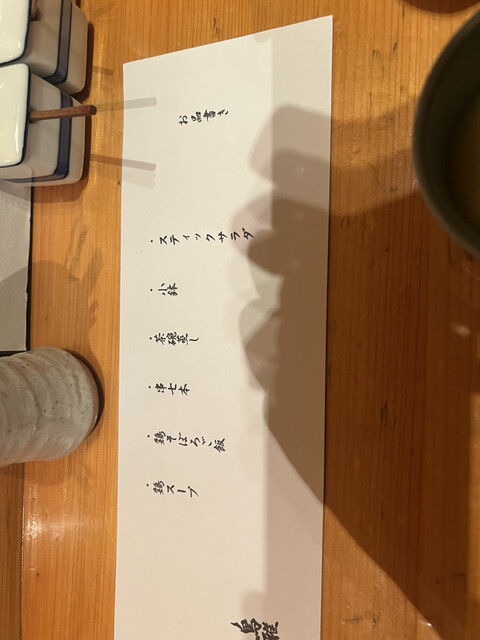 お品書き
・スティックサラダ
・小鉢
・茶碗蒸し
・串七本
・鶏そぼろご飯
・鶏スープ
鳥雅